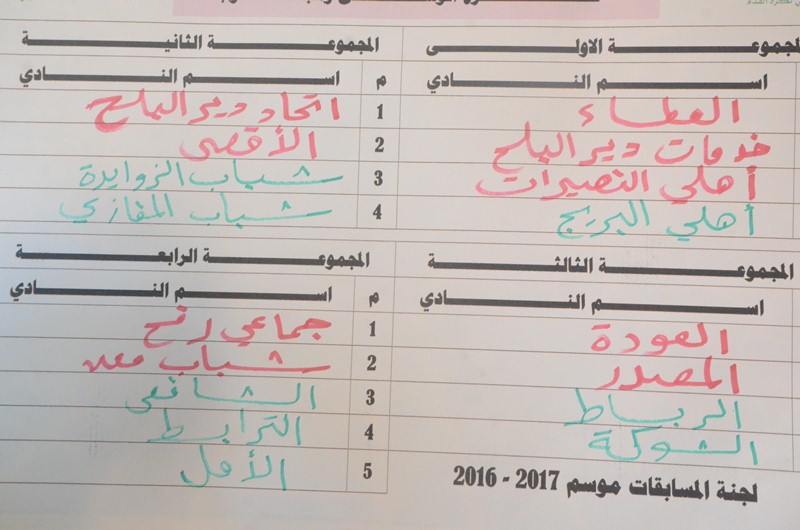 المجموعة الاولى
اسم النادي
العطاء
خدمات دير البلح
أهلي النصيرات
أهلي البريج
المجموعة الثانية
م اسم النادي
1 اتحاد دير البلح
2 الأقصى
3 شباب الزوايدة
4 شباب المغازي
المجموعة الثالثة
اسم النادي
العودة
المصدر
الرباط
الشوكة
المجموعة الرابعة
م اسم النادي
1 جماعي رفح
2 شباب معن
3 الشافعي
4 الترابط
5 الأمل
لجنة المسابقات موسم 2017 - 2016